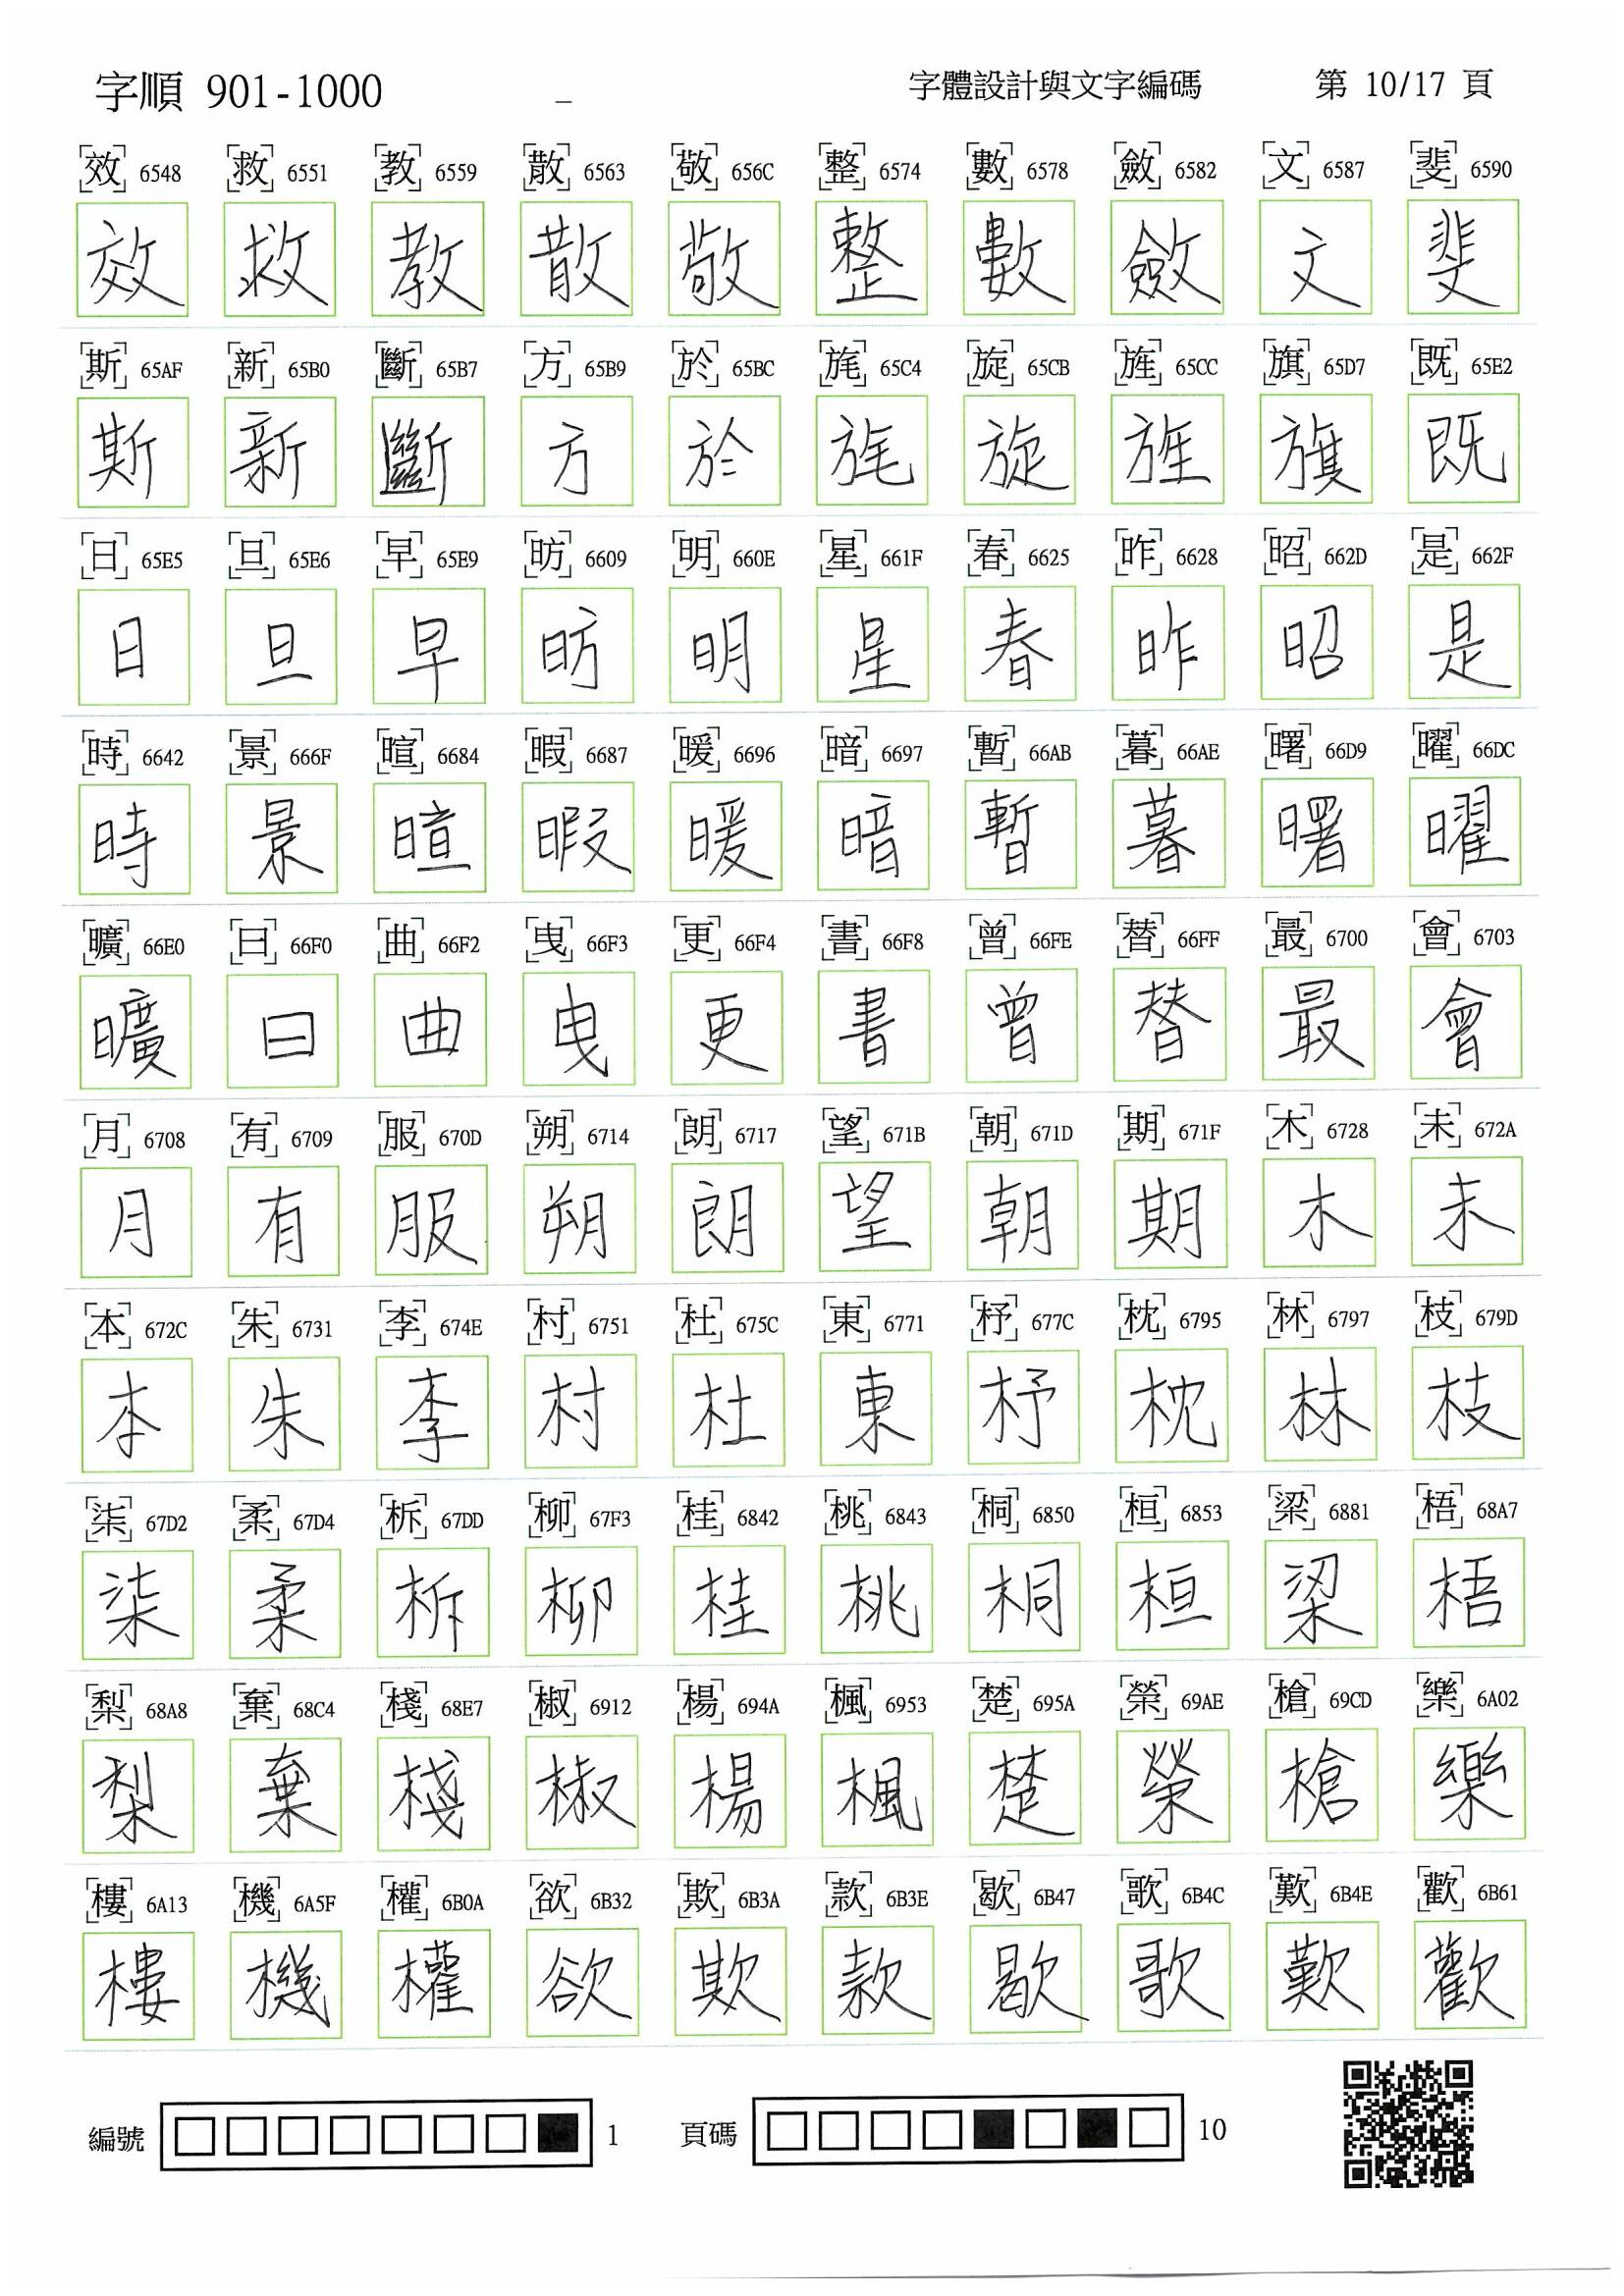 字順 901-1000 字體設計與文字編碼 第 10/17 頁
效 6548 救 6551 教 6559 散 6563 敬 656C 整 6574 數 6578 斂 6582 文 6587 斐 6590
效 救 教 散 敬 整 數 斂 文 斐
斯 65AF 新 65B0 斷 65B7 方 65B9 於 65BC 旄 65C4 旋 65CB 旌 65CC 旗 65D7 既 65E2
斯 新 斷 方 於 旄 旋 旌 旗 既
日 65E5 旦 65E6 早 65E9 昉 6609 明 660E 星 661F 春 6625 昨 6628 昭 662D 是 662F
日 旦 早 昉 明 星 春 昨 昭 是
時 6642 景 666F 暄 6684 暇 6687 暖 6696 暗 6697 暫 66AB 暮 66AE 曙 66D9 曜 66DC
時 景 暄 暇 暖 暗 暫 暮 曙 曜
曠 66E0 曰 66F0 曲 66F2 曳 66F3 更 66F4 書 66F8 曾 66FE 替 66FF 最 6700 會 6703
曠 曰 曲 曳 更 書 曾 替 最 會
月 6708 有 6709 服 670D 朔 6714 朗 6717 望 671B 朝 671D 期 671F 木 6728 未 672A
月 有 服 朔 朗 望 朝 期 木 未
本 672C 朱 6731 李 674E 村 6751 杜 675C 東 6771 杼 677C 枕 6795 林 6797 枝 679D
本 朱 李 村 杜 東 杼 枕 林 枝
柒 67D2 柔 67D4 柝 67DD 柳 67F3 桂 6842 桃 6843 桐 6850 桓 6853 梁 6881 梧 68A7
柒 柔 柝 柳 桂 桃 桐 桓 梁 梧
梨 68A8 棄 68C4 棧 68E7 椒 6912 楊 694A 楓 6953 楚 695A 榮 69AE 槍 69CD 樂 6A02
梨 棄 棧 椒 楊 楓 楚 榮 槍 樂
樓 6A13 機 6A5F 權 6B0A 欲 6B32 欺 6B3A 款 6B3E 歇 6B47 歌 6B4C 歎 6B4E 歡 6B61
樓 機 權 欲 欺 款 歇 歌 歎 歡
編號 1 頁碼 10